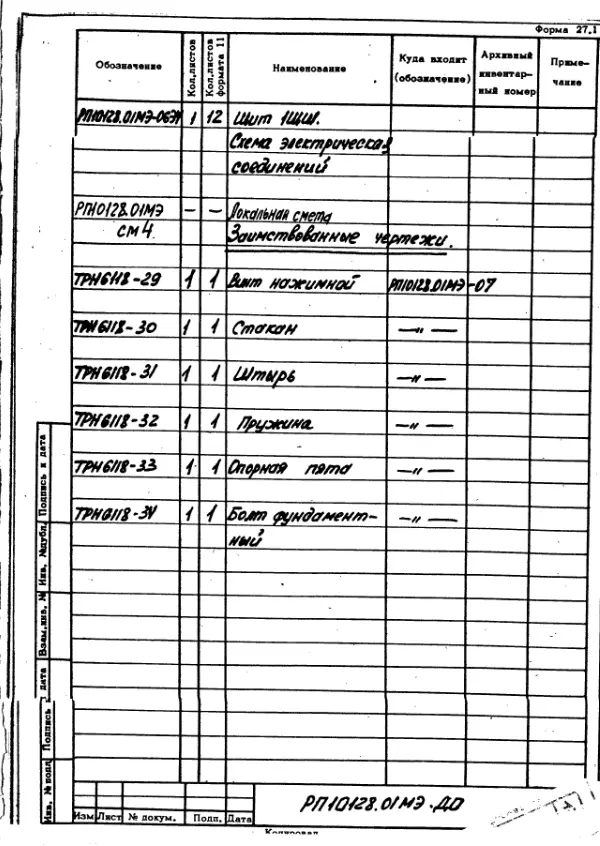 Форма 27.1
Обозначение Кол.листов Кол.листов формата 11 Наименование Куда входит (обозначение) Архивный инвентарный номер Примечание
РП10128.01МЭ-06Э4 1 12 Щит 1ЩШ.
Схема электрическая
соединений
РП10128.01МЭ — — Локальная смета
СМ4.
Заимствованные чертежи.
ТРН6118-29 1 1 Винт нажимной РП10128.01МЭ-07
ТРН6118-30 1 1 Стакан —〃—
ТРН6118-31 1 1 Штырь —〃—
ТРН6118-32 1 1 Пружина —〃—
ТРН6118-33 1 1 Опорная пята —〃—
ТРН6118-34 1 1 Болт фундамент- —〃—
ный
Инв. № подл. Подпись и дата Взам.инв. № Инв. №дубл. Подпись и дата
РП10128.01МЭ-ДО
Изм Лист № докум. Подп. Дата
Копировал